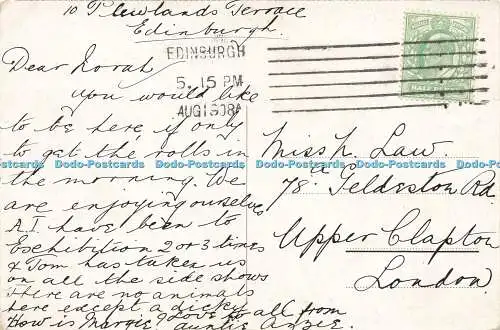 10 Plewlands Terrace
Edinburgh.
EDINBURGH
5. 15 PM
AUG
HALF
Dear Norah
you would like
to be here if only
to get the rolls in
the morning. We
are enjoying ourselves
A.I have been to
Exhibition 2 or 3 times
& Tom has taken us
on all the side shows
There are no animals
here except a dicky
How is Margie? Love to all from
auntie
Miss N. Law
78a Geldeston Rd
Upper Clapton
London
Dodo-Postcards Dodo-Postcards Dodo-Postcards Dodo-Postcards